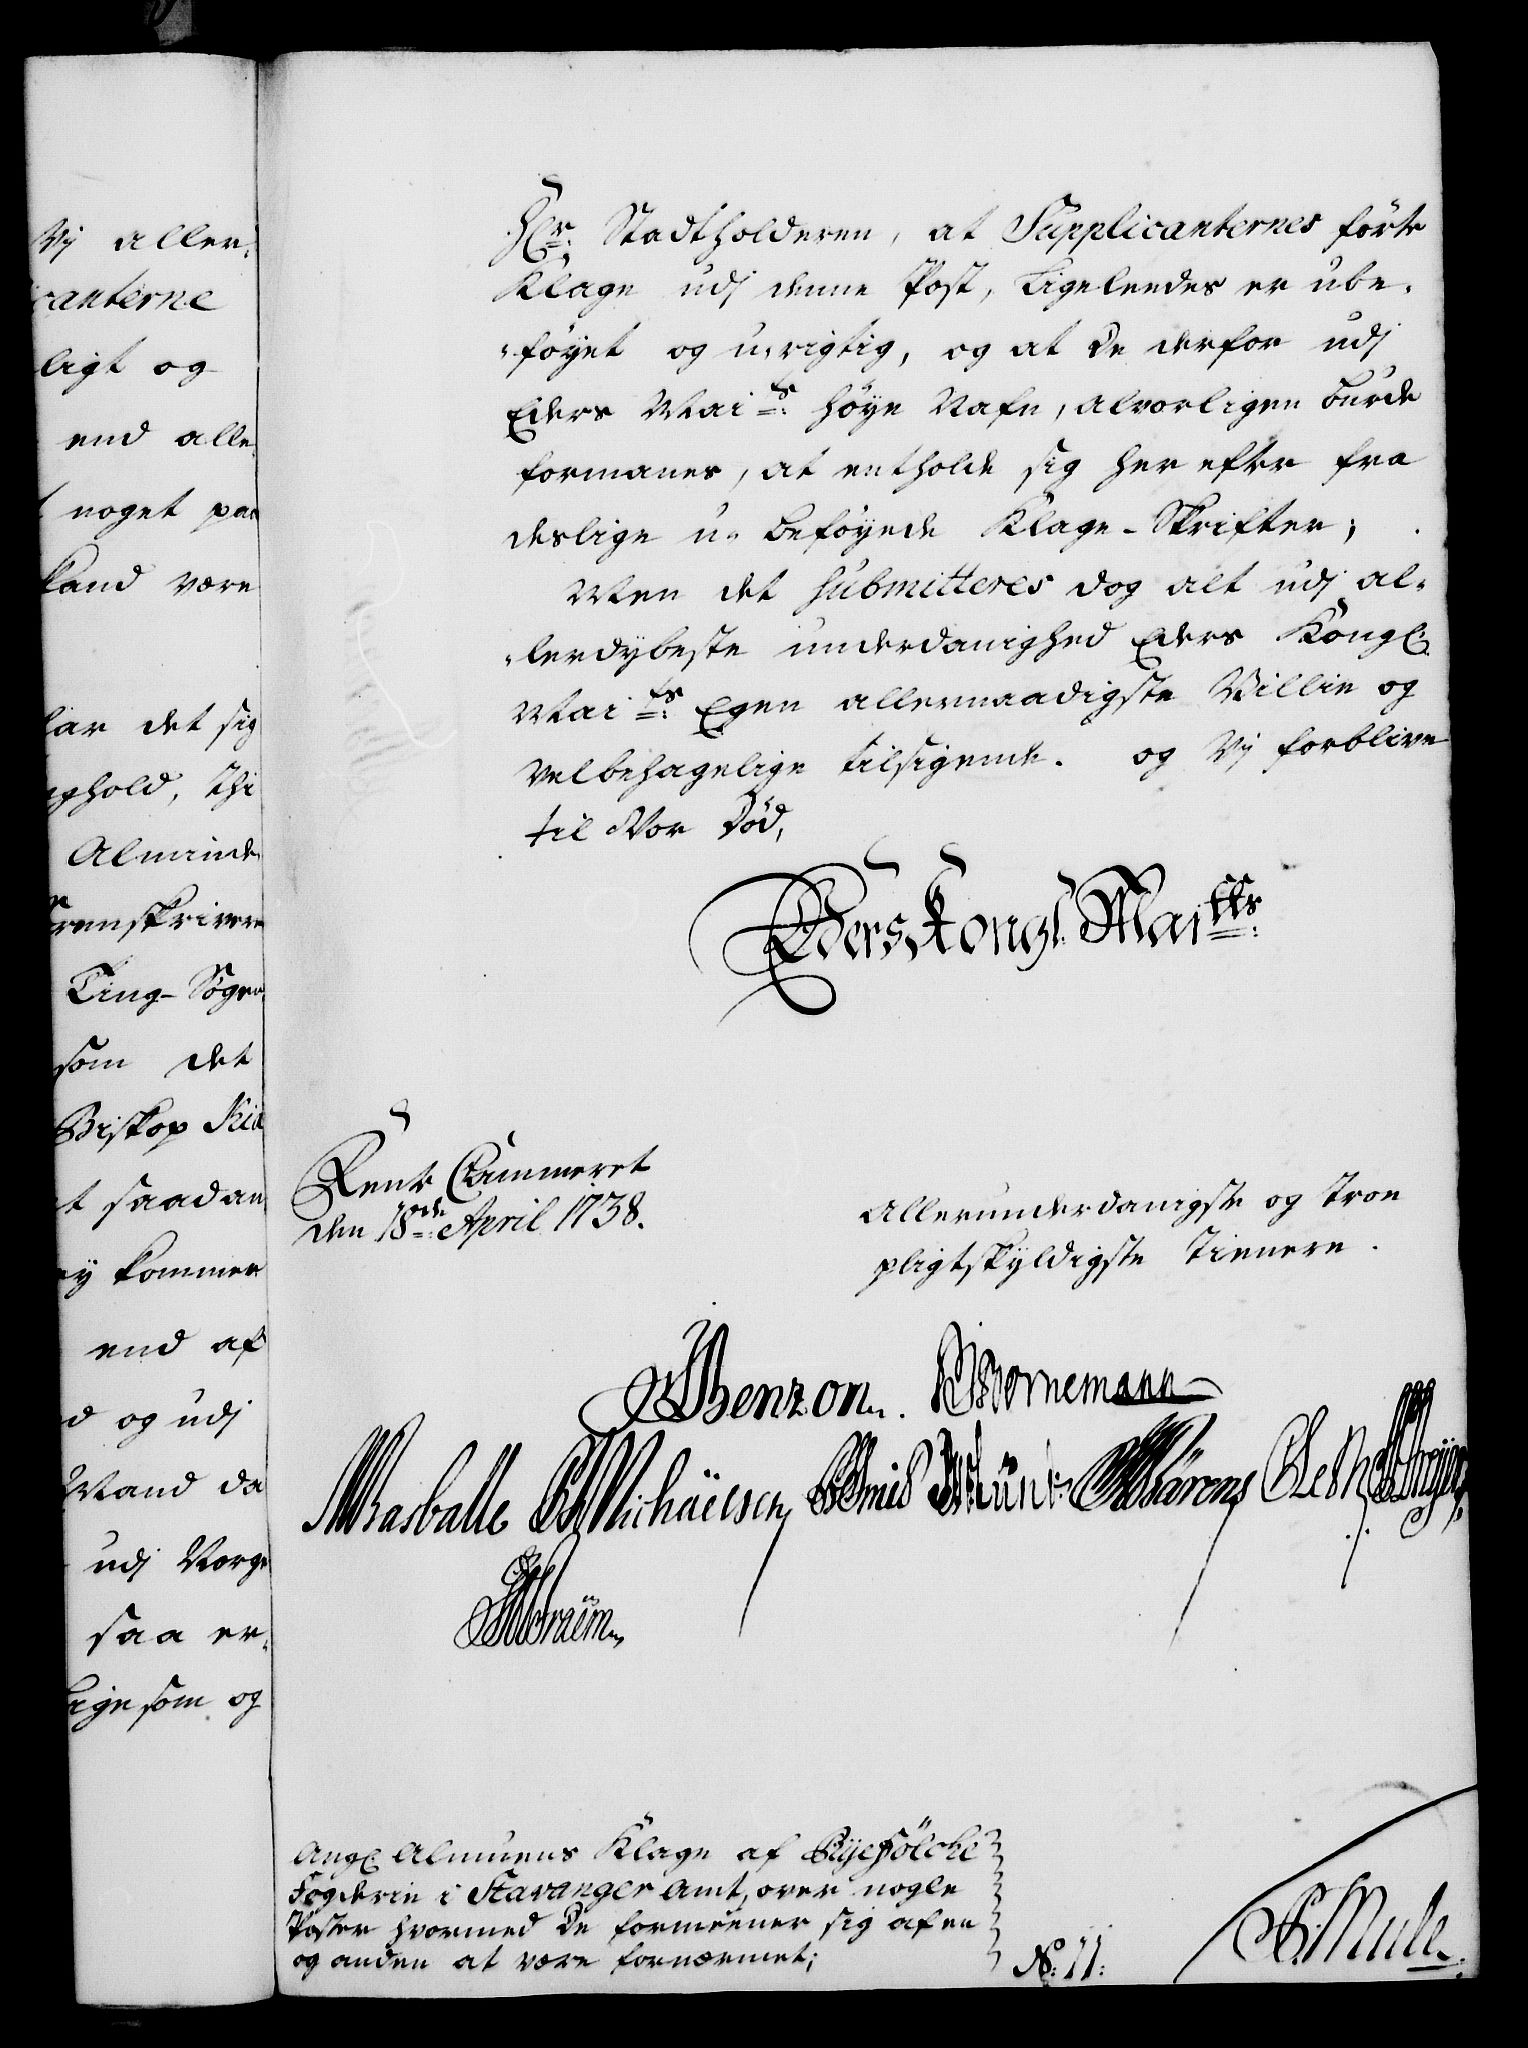 Vj aller,
canterne
ligt og
end alle
noget paa
kand være
lar det sig
nghold, thi
Alminde
renskrivere
Ting-Sogne
som det
Biskop
t saadan
ey kommer
end af
d og udj
Mand da
udj Norge
saa er,
lige som og
Hr: Stadtholderen, at Supplicanternes förte
Klage udj denne Post, Ligeleedes er ube,
föyet og u,rigtig, og at De derfor udj
Eders Mai ts: Höye Nafn, alvorligen burde
formanes, at entholde sig her efter fra
deslige u, beföyede Klage-Skrifter;
Men det submitteres dog alt udj al,
,lerdybeste underdanighed Eders Kongl:
Mai ts: Egen allernaadigste Villie og
velbehagelige tilsigende. og Vj forblive
til Vor Död,
Eders Kongl: Mai tts:
Rente Cammeret
den 18de: April 1738.
Allerunderdanigste og Troe
pligtskyldigste Tienere.
Benzon. Bornemann
Rasballe Michäelsen
Angl: Almuens Klage af Ryefölcke
Fogderie i Stavanger Amt, over nogle
Poster hvormed De formeener sig af en
og anden at være fornærmet;
No: 11:
Mule